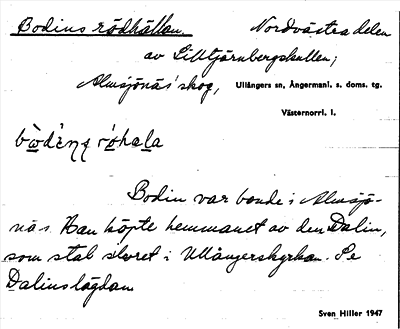 Bodins rödhällan. Nordvästra delen
av Lilltjärnbergskullen;
Almsjönäs' skog, Ullångers sn, Ångermanl. s. doms. tg.
Västernorrl. l.
Bodin var bonde i Almsjö-
näs. Han köpte hemmanet av den Dalin,
som stal silvret i Ullångerskyrkan. Se
Dalinslägdan
Sven Hiller 1947